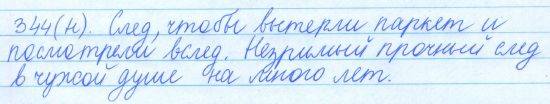 344(н). След, чтобы вытерли паркет и
посмотрели вслед. Незримый прочный след
в чужой душе на много лет.